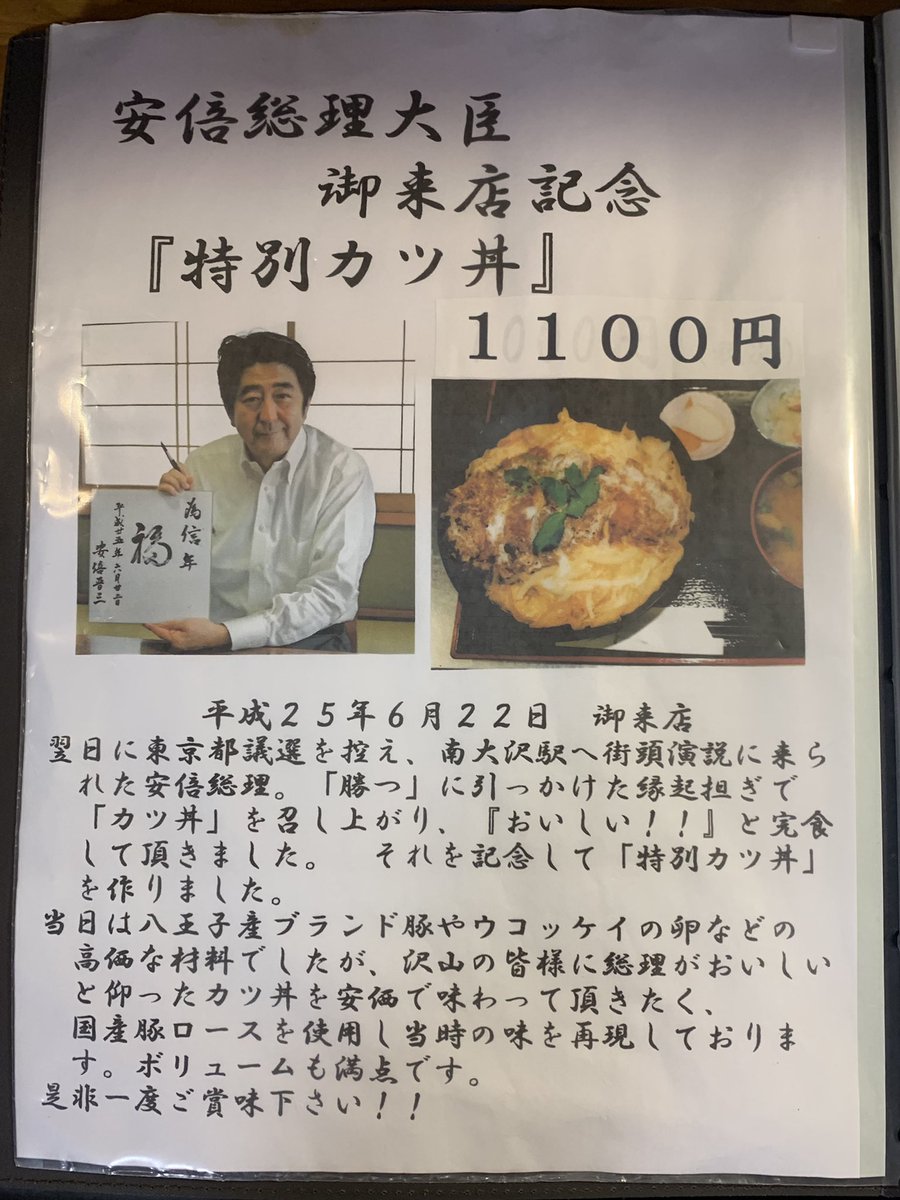 安倍総理大臣
御来店記念
『特別カツ丼』
１１００円
為信年
福
平成廿五年六月廿二日
安倍晋三
平成２５年６月２２日　御来店
翌日に東京都議選を控え、南大沢駅へ街頭演説に来ら
れた安倍総理。「勝つ」に引っかけた縁起担ぎで
「カツ丼」を召し上がり、『おいしい！！』と完食
して頂きました。　それを記念して「特別カツ丼」
を作りました。
当日は八王子産ブランド豚やウコッケイの卵などの
高価な材料でしたが、沢山の皆様に総理がおいしい
と仰ったカツ丼を安価で味わって頂きたく、
国産豚ロースを使用し当時の味を再現しておりま
す。ボリュームも満点です。
是非一度ご賞味下さい！！